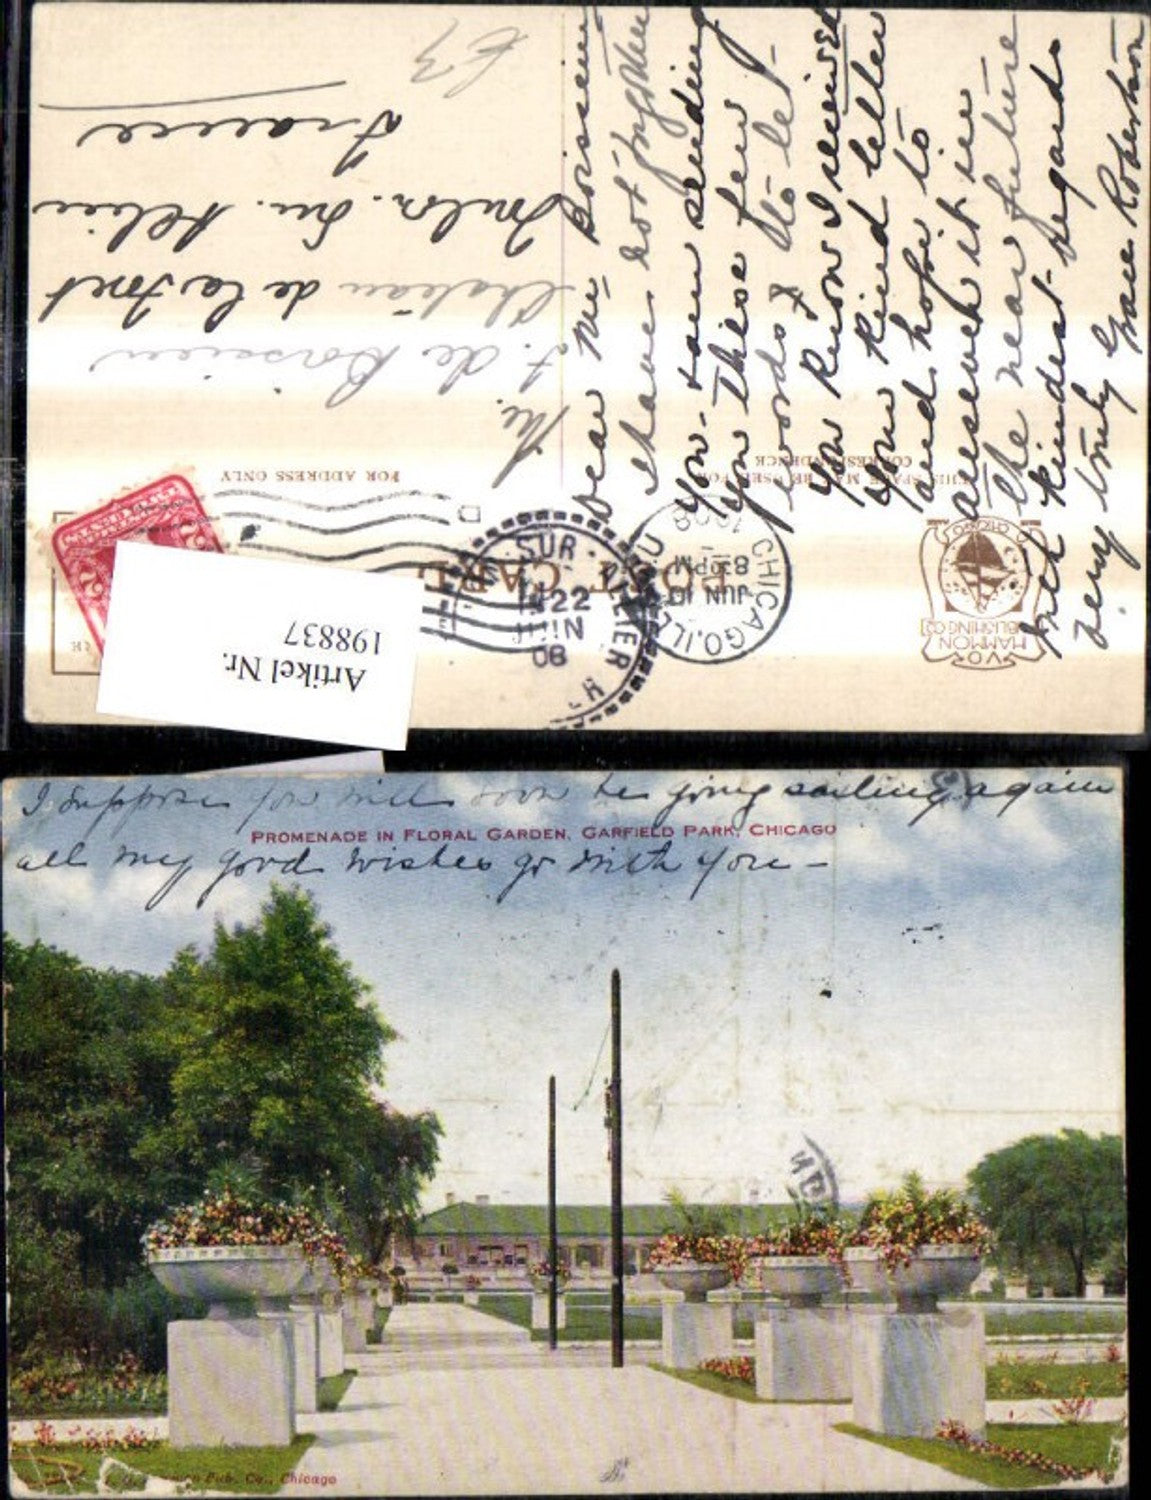 Dear Mr Borssen
I have not forgotten
you - I am sending
you these few
words to let
you know I received
your kind letter
and hope to
answer it in
the near future
with kindest regards
Very truly Grace Robertson
Mr. F. de
Château de la
France
POST CARD
THIS SPACE MAY BE USED FOR
CORRESPONDENCE
FOR ADDRESS ONLY
CHICAGO, ILL.
JUN 10
8 30 PM
1908
SUR ALLIER
22
JUIN
08
V.O. HAMMON
PUBLISHING CO.
CHICAGO
Artikel Nr.
198837
I suppose you will soon be going sailing again
PROMENADE IN FLORAL GARDEN, GARFIELD PARK, CHICAGO
all my good wishes go with you -
Pub. Co., Chicago